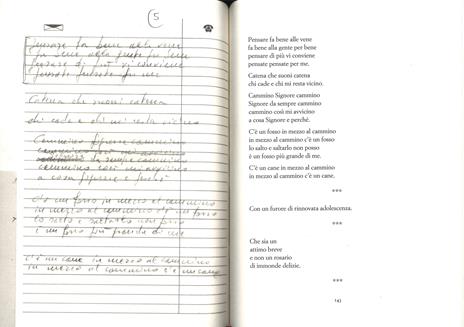 5
Pensare fa bene alle vene
fa bene alla gente per bene
pensare di più vi conviene
pensate pensate per me
Catena che suoni catena
chi cade e chi mi resta vicino
Cammino Signore cammino
da sempre cammino
cammino così mi avvicino
a cosa Signore e perché
c'è un fosso in mezzo al cammino
in mezzo al cammino c'è un fosso
lo salto o saltarlo non posso
è un fosso più grande di me
c'è un cane in mezzo al cammino
in mezzo al cammino c'è un cane
Pensare fa bene alle vene
fa bene alla gente per bene
pensare di più vi conviene
pensate pensate per me.
Catena che suoni catena
chi cade e chi mi resta vicino.
Cammino Signore cammino
Signore da sempre cammino
cammino così mi avvicino
a cosa Signore e perché.
C'è un fosso in mezzo al cammino
in mezzo al cammino c'è un fosso
lo salto o saltarlo non posso
è un fosso più grande di me.
C'è un cane in mezzo al cammino
in mezzo al cammino c'è un cane.
***
Con un furore di rinnovata adolescenza.
***
Che sia un
attimo breve
e non un rosario
di immonde delizie.
***
143